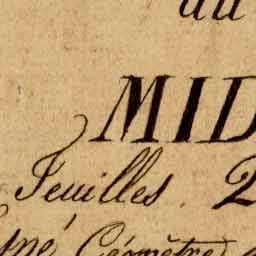 au
MID
Feuilles. 2
gné, Géomètre